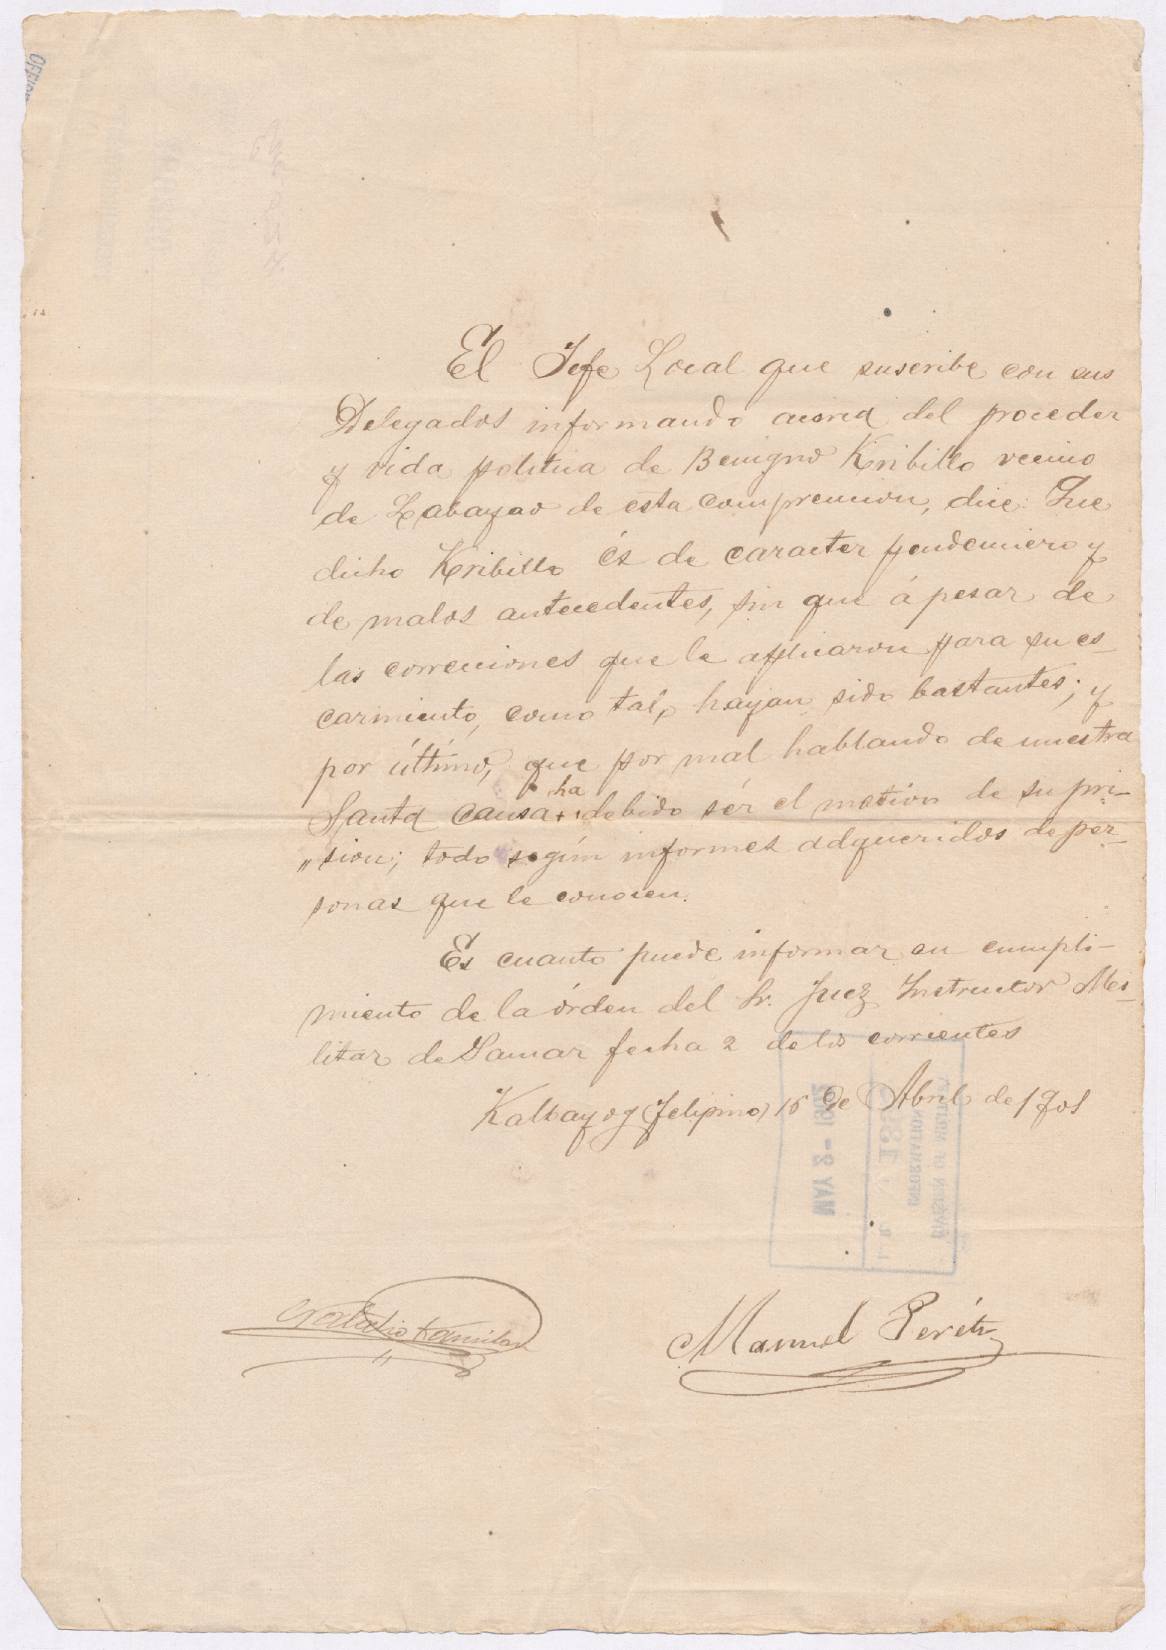 El Jefe Local que suscribe con sus
Delegados informando acerca del proceder
y vida politica de Benigno Kribillo vecino
de Labayao de esta comprencion, dice: Que
dicho Kribillo és de caracter pendenciero y
de malos antecedentes, sin que á pesar de
las correcciones que le aplicaron para su es-
carmiento, como tal, hayan sido bastantes; y
por último, que por mal hablando de nuestra
ha
Santa causa + debido sér el motivo de su pri-
"sion; todo según informes adqueridos de per-
sonas que le conocen.
Es cuanto puede informar en cumpli-
miento de la órden del Sr. Juez Instructor Mi-
litar de Samar fecha 2 de los corrientes
Kalbayog (Felipino) 16 de Abril de 1901
DIVISION OF MILITARY
INFORMATION
MAY 2 - 1902
Manuel Peréz